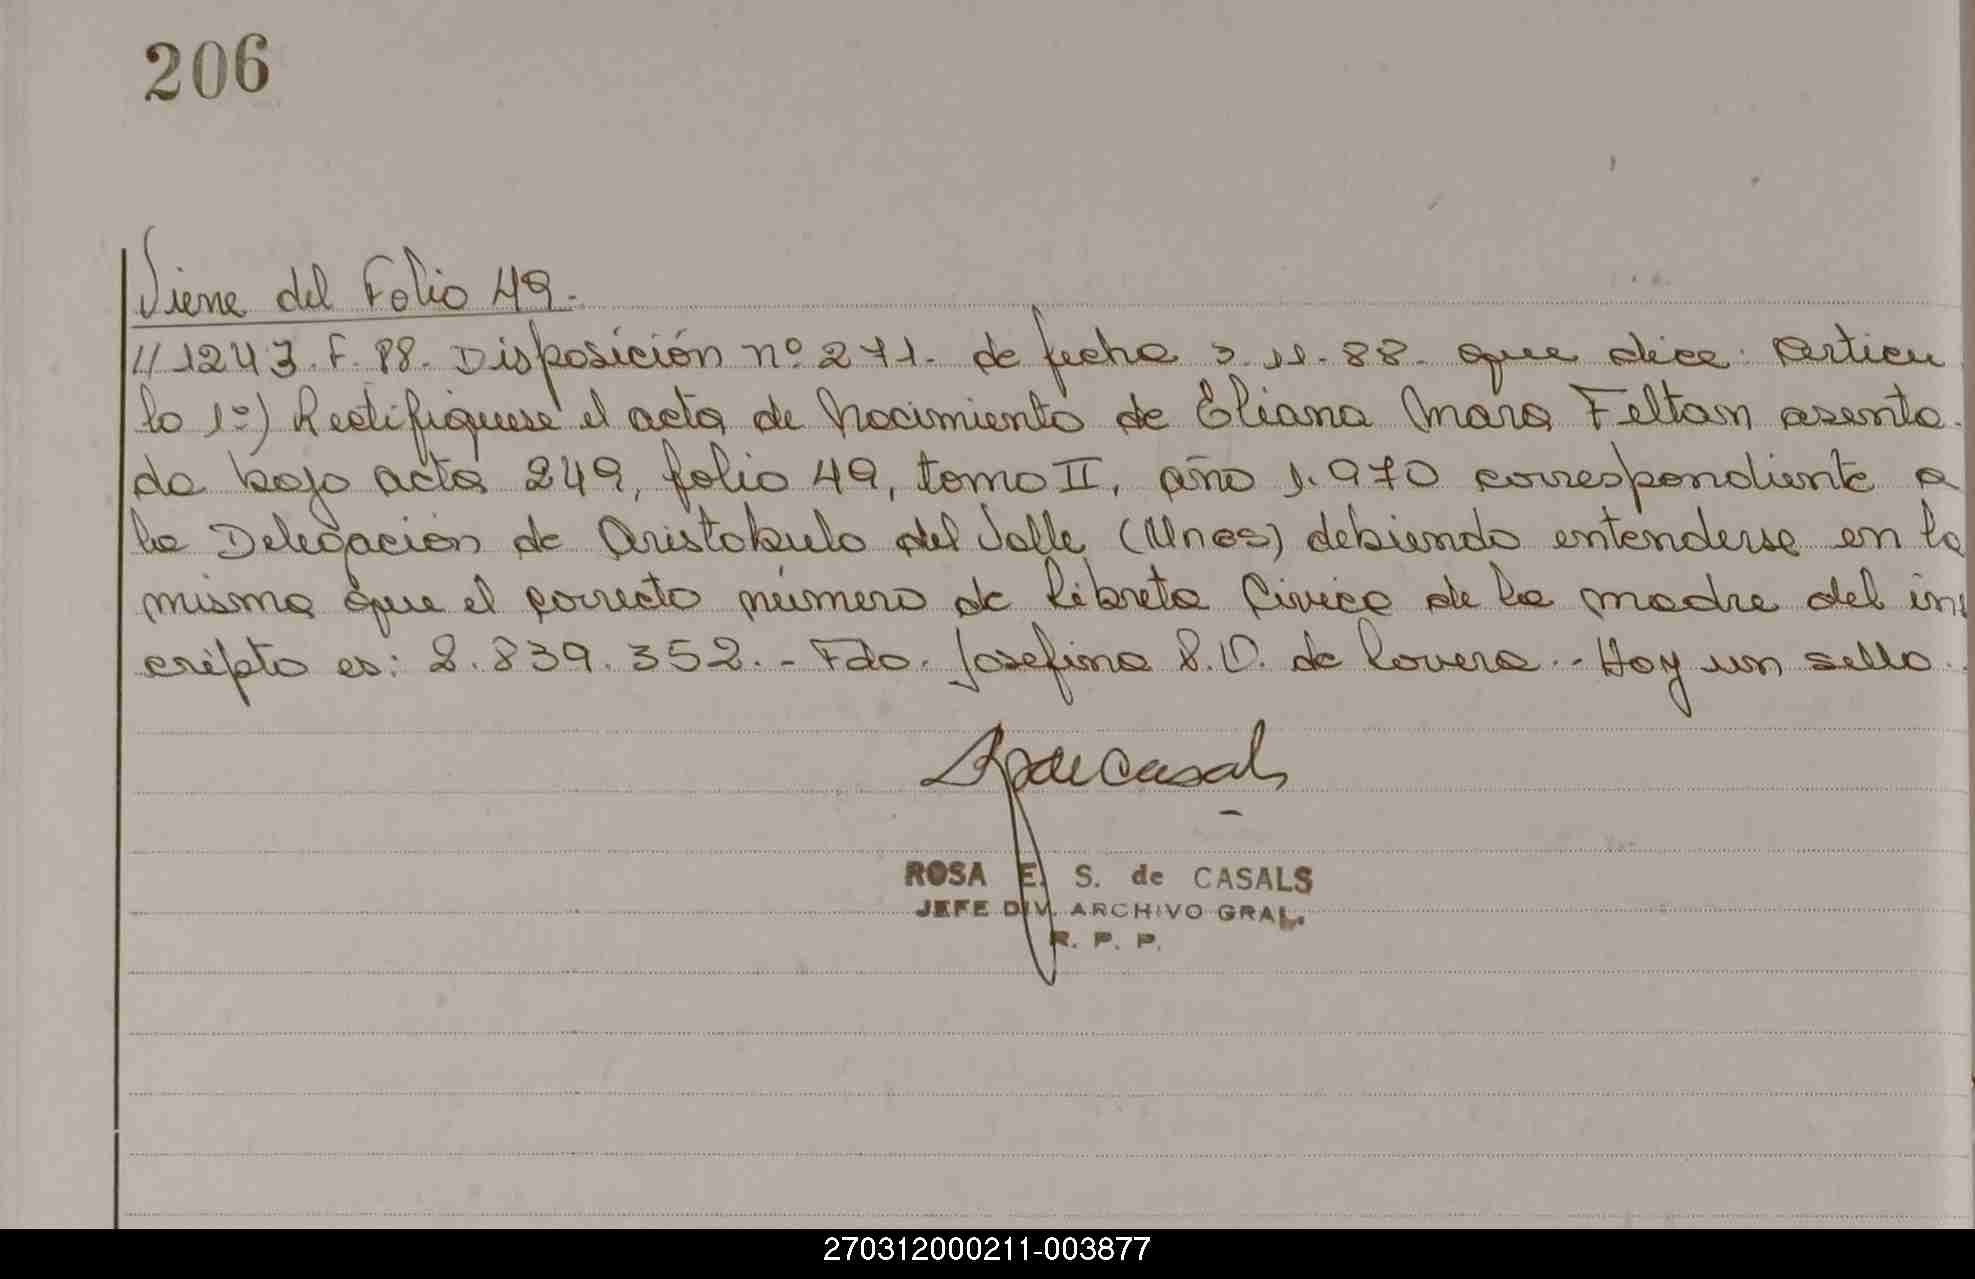 206
Viene del Folio 49.-
// 1243.F.88. Disposición nº 271. de fecha 3.11.88. que dice: Artícu
lo 1º) Rectifíquese el acta de Nacimiento de Eliana Mara Feltan asenta-
da bajo acta 249, folio 49, tomo II, año 1.970 correspondiente a
la Delegación de Aristobulo del Valle (Mnes) debiendo entenderse en la
misma que el correcto número de Libreta Cívica de la madre del ins
cripto es: 2.839.352.- Fdo. Josefina S.O. de Lovera.- Hay un sello.
ROSA E. S. de CASALS
JEFE DIV. ARCHIVO GRAL.
R. P. P.
270312000211-003877